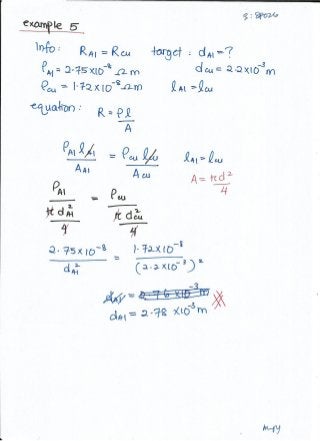 example 5
Info: R_Al = R_cu target: d_Al = ?
ρ_Al = 2.75 x 10^-8 Ωm d_cu = 2.2 x 10^-3 m
ρ_cu = 1.72 x 10^-8 Ωm l_Al = l_cu
equation: R = ρl / A
ρ_Al l_Al / A_Al = ρ_cu l_cu / A_cu l_Al = l_cu
A = πd² / 4
ρ_Al / (πd_Al² / 4) = ρ_cu / (πd_cu² / 4)
2.75 x 10^-8 / d_Al² = 1.72 x 10^-8 / (2.2 x 10^-3)²
d_Al = 2.78 x 10^-3 m